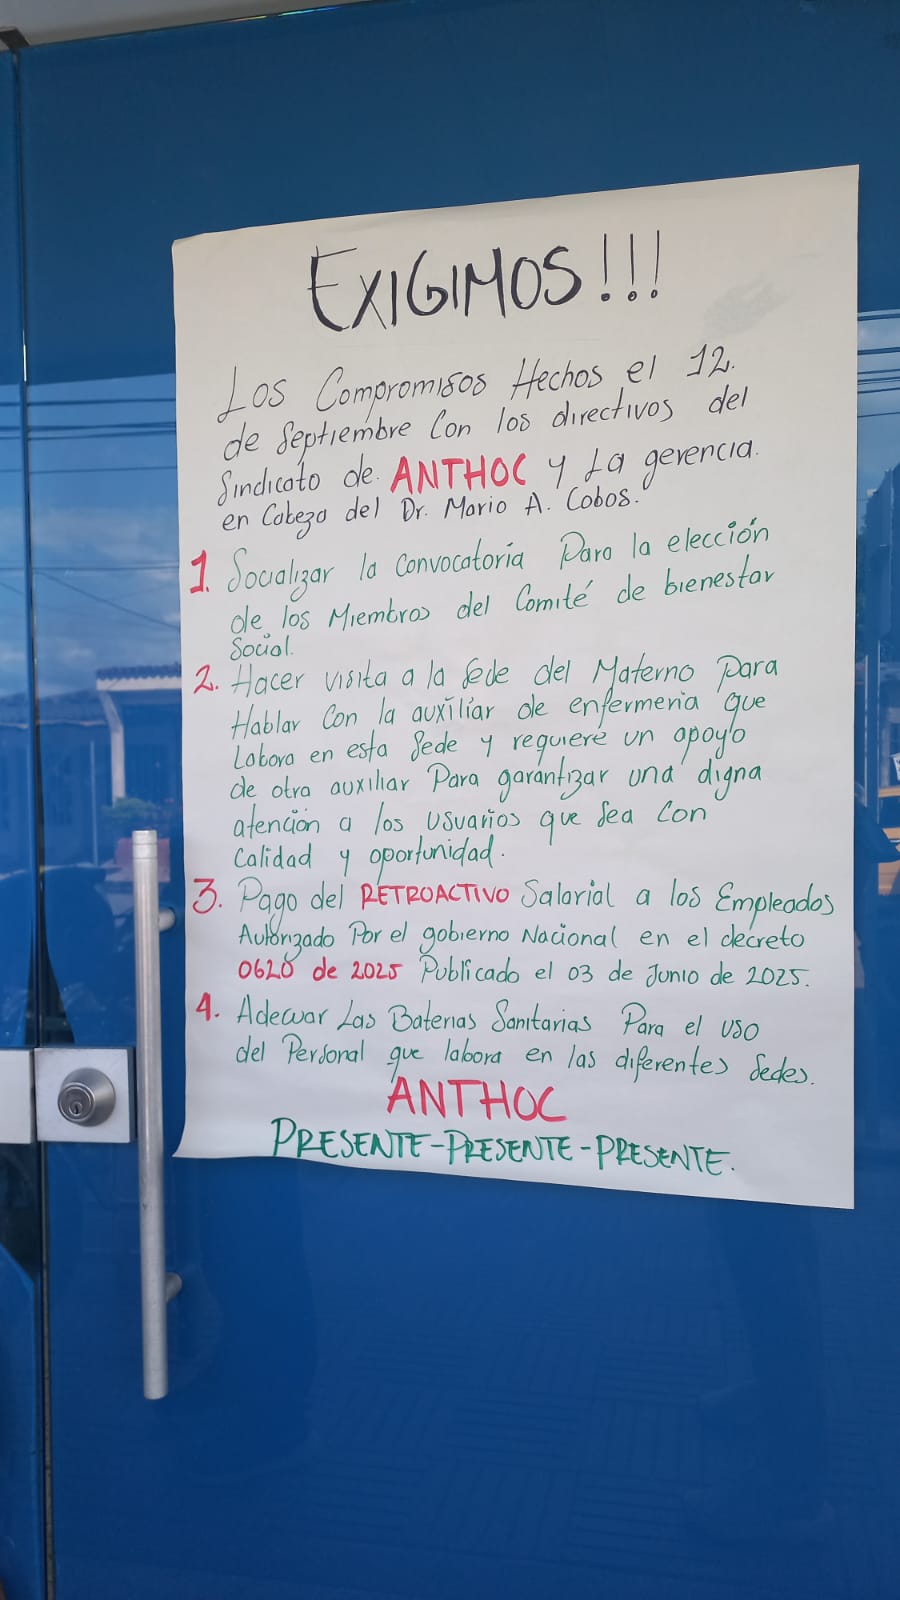 EXIGIMOS!!!
Los Compromisos Hechos el 12.
de Septiembre Con los directivos del
Sindicato de. ANTHOC y La gerencia.
en Cabeza del Dr. Mario A. Cobos.
1. Socializar la Convocatoria Para la elección
de los Miembros del Comité de bienestar
Social.
2. Hacer visita a la Sede del Materno Para
Hablar Con la auxiliar de enfermeria que
Labora en esta Sede y requiere un apoyo
de otra auxiliar Para garantizar una digna
atención a los usuarios que Sea Con
Calidad y oportunidad.
3. Pago del RETROACTIVO Salarial a los Empleados
Autorizado Por el gobierno Nacional en el decreto
0620 de 2025 Publicado el 03 de Junio de 2025.
4. Adecuar Las Baterias Sanitarias Para el uso
del Personal que labora en las diferentes Sedes.
ANTHOC
PRESENTE-PRESENTE-PRESENTE.